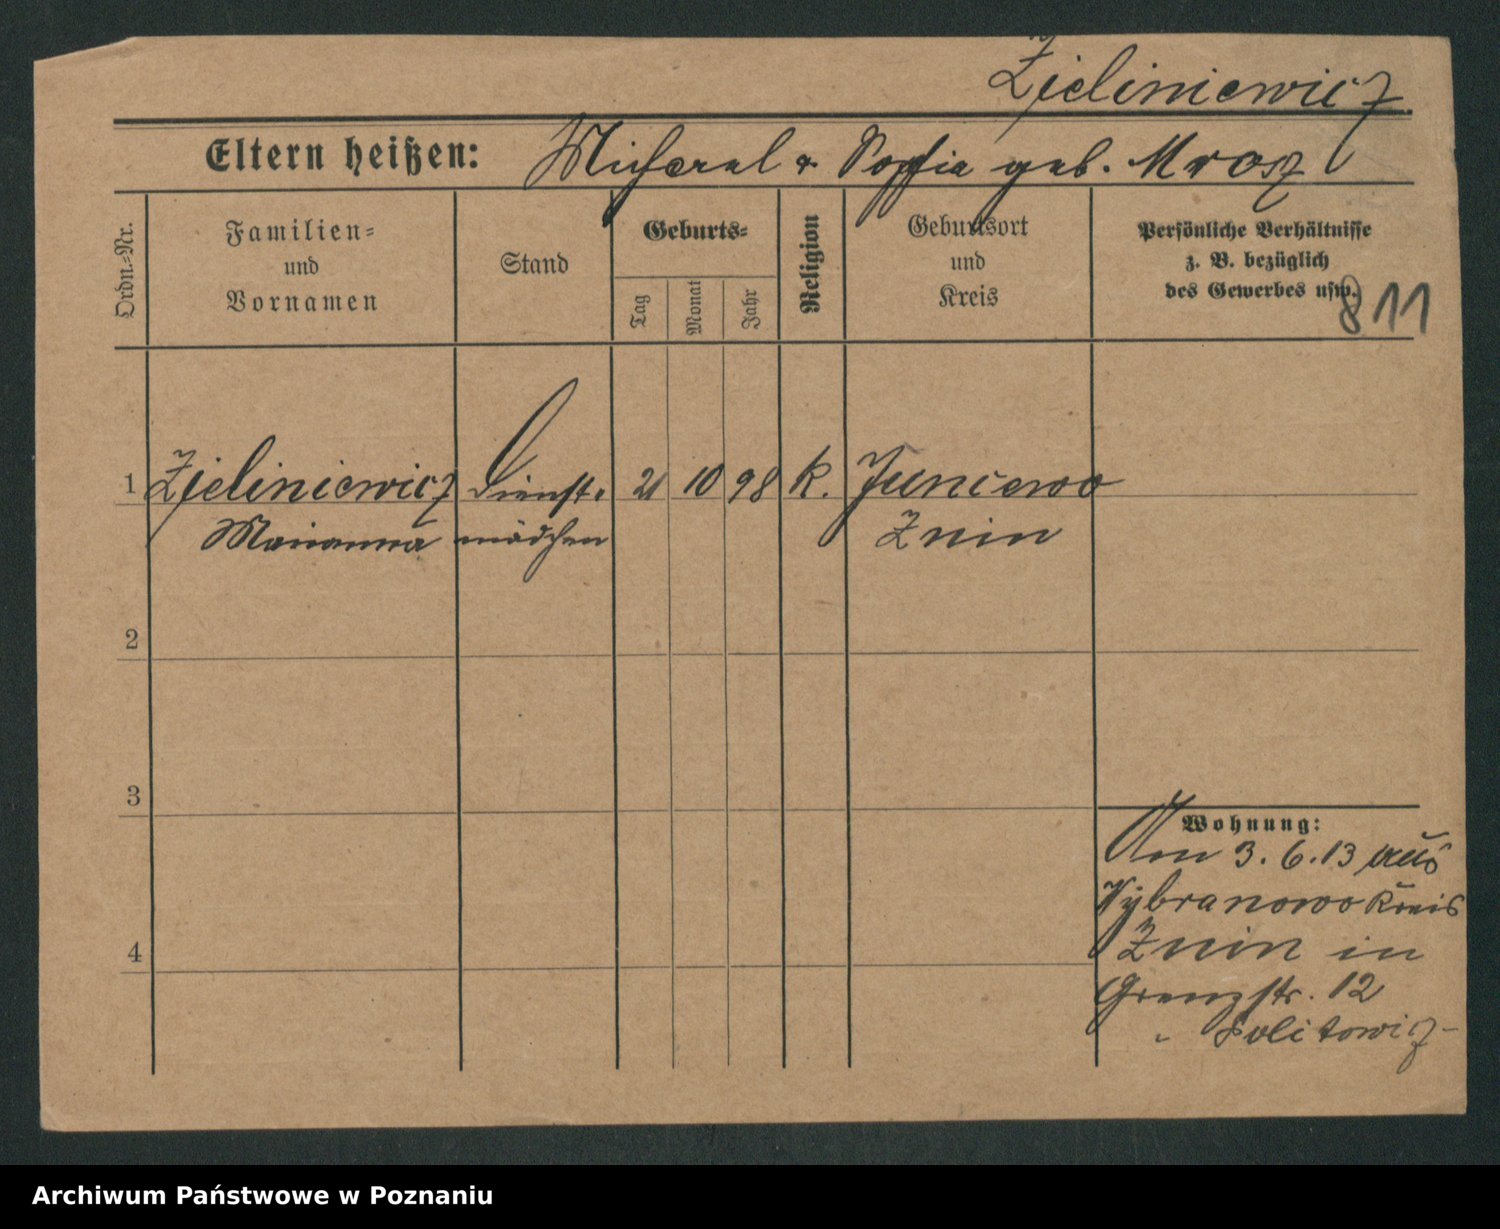 Zieliniewicz
Eltern heißen: Michael & Sophia geb. Mrosz
Ordn.=Nr.
Familien=
und
Vornamen
Stand
Geburts=
Tag
Monat
Jahr
Religion
Geburtsort
und
Kreis
Persönliche Verhältnisse
z. B. bezüglich
des Gewerbes usw.
811
1 Zieliniewicz Dienst= 21 10 98 k. Juncewo
Marianna mädchen Znin
2
3
Wohnung:
Am 3. 6. 13 aus
Wybranowo Kreis
4
Znin in
Grenzstr. 12
Politowicz
Archiwum Państwowe w Poznaniu